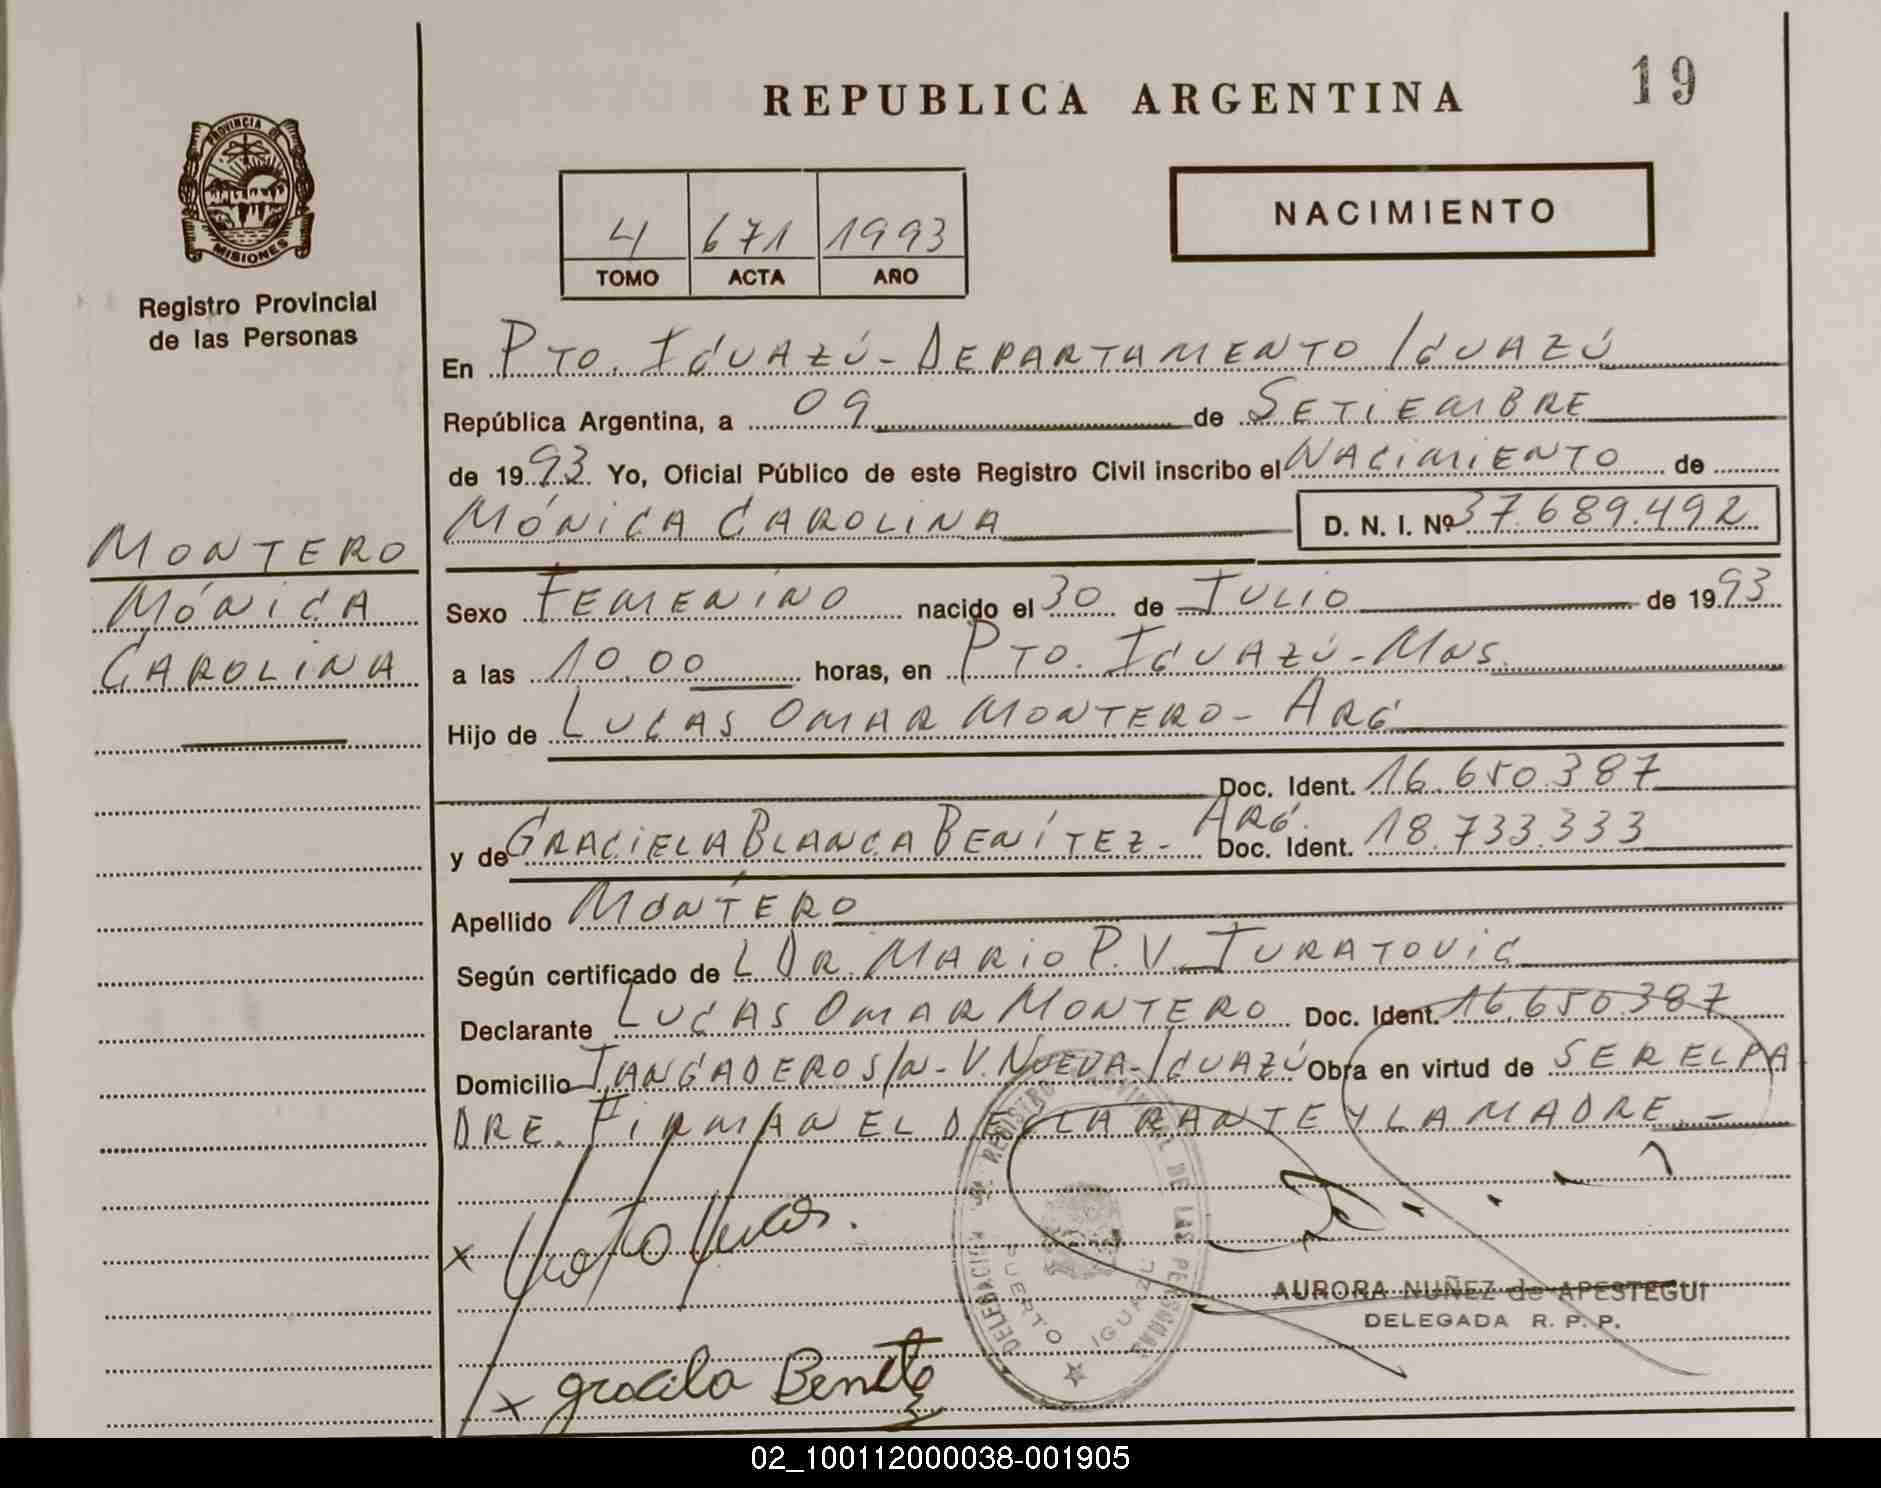 REPUBLICA ARGENTINA
19
PROVINCIA DE
MISIONES
Registro Provincial
de las Personas
4 671 1993
TOMO ACTA AÑO
NACIMIENTO
En PTO. IGUAZÚ - DEPARTAMENTO IGUAZÚ
República Argentina, a 09 de SETIEMBRE
de 1993 Yo, Oficial Público de este Registro Civil inscribo el NACIMIENTO de
MÓNICA CAROLINA D. N. I. Nº 37.689.492
MONTERO
MÓNICA
CAROLINA
Sexo FEMENINO nacido el 30 de JULIO de 1993
a las 10.00 horas, en PTO. IGUAZÚ - MNS.
Hijo de LUCAS OMAR MONTERO - ARG
Doc. Ident. 16.650.387
y de GRACIELA BLANCA BENÍTEZ - ARG. Doc. Ident. 18.733.333
Apellido MONTERO
Según certificado de L DR. MARIO P. V. JURATOVIC
Declarante LUCAS OMAR MONTERO Doc. Ident. 16.650.387
Domicilio TANGADERO S/N - V. NUEVA - IGUAZÚ Obra en virtud de SER EL PA
DRE. FIRMAN EL DECLARANTE Y LA MADRE. -
x
x Graciela Benitez
REGISTRO PROVINCIAL DE LAS PERSONAS
DELEGACION
PUERTO IGUAZU
AURORA NUÑEZ de APESTEGUI
DELEGADA R. P. P.
02_100112000038-001905